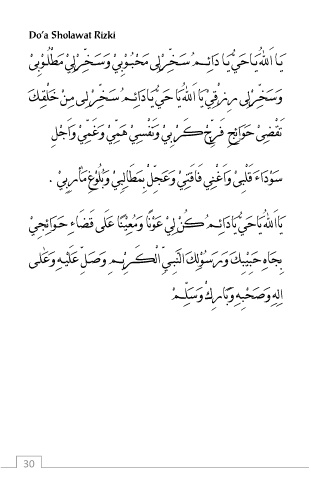 Do'a Sholawat Rizki
يَا اَللهُ يَاحَيُّ يَا دَائِمُ سَخِّرْلِى مَحْبُوْبِيْ وَسَخِّرْلِيْ مَطْلُوْبِيْ
وَسَخِّرْلِى رِزْقِيْ يَا اَللهُ يَا حَيُّ يَادَائِمُ سَخِّرْلِى مِنْ خَلْقِكَ
نَقْضِىْ حَوَائِجِ فَرِّجْ كَرْبِيْ وَنَفْسِيْ هَمِّيْ وَغَمِّيْ وَاَجْلِ
سَوْدَاءَ قَلْبِىْ وَاَغْنِي فَاقَتِيْ وَعَجِّلْ بِمَطَالِبِيْ وَبُلُوْغِ مَأْرِبِيْ .
يَااَللهُ يَاحَيُّ يَادَائِمُ كُنْ لِيْ عَوْنًا وَمُعِيْنًا عَلَى قَضَاءِ حَوَائِجِيْ
بِجَاهِ حَبِيْبِكَ وَرَسُوْلِكَ النَّبِيِّ الْكَرِيْمِ وَصَلِّ عَلَيْهِ وَعَلٰى
اٰلِهِ وَصَحْبِهِ وَبَارِكْ وَسَلِّمْ
30